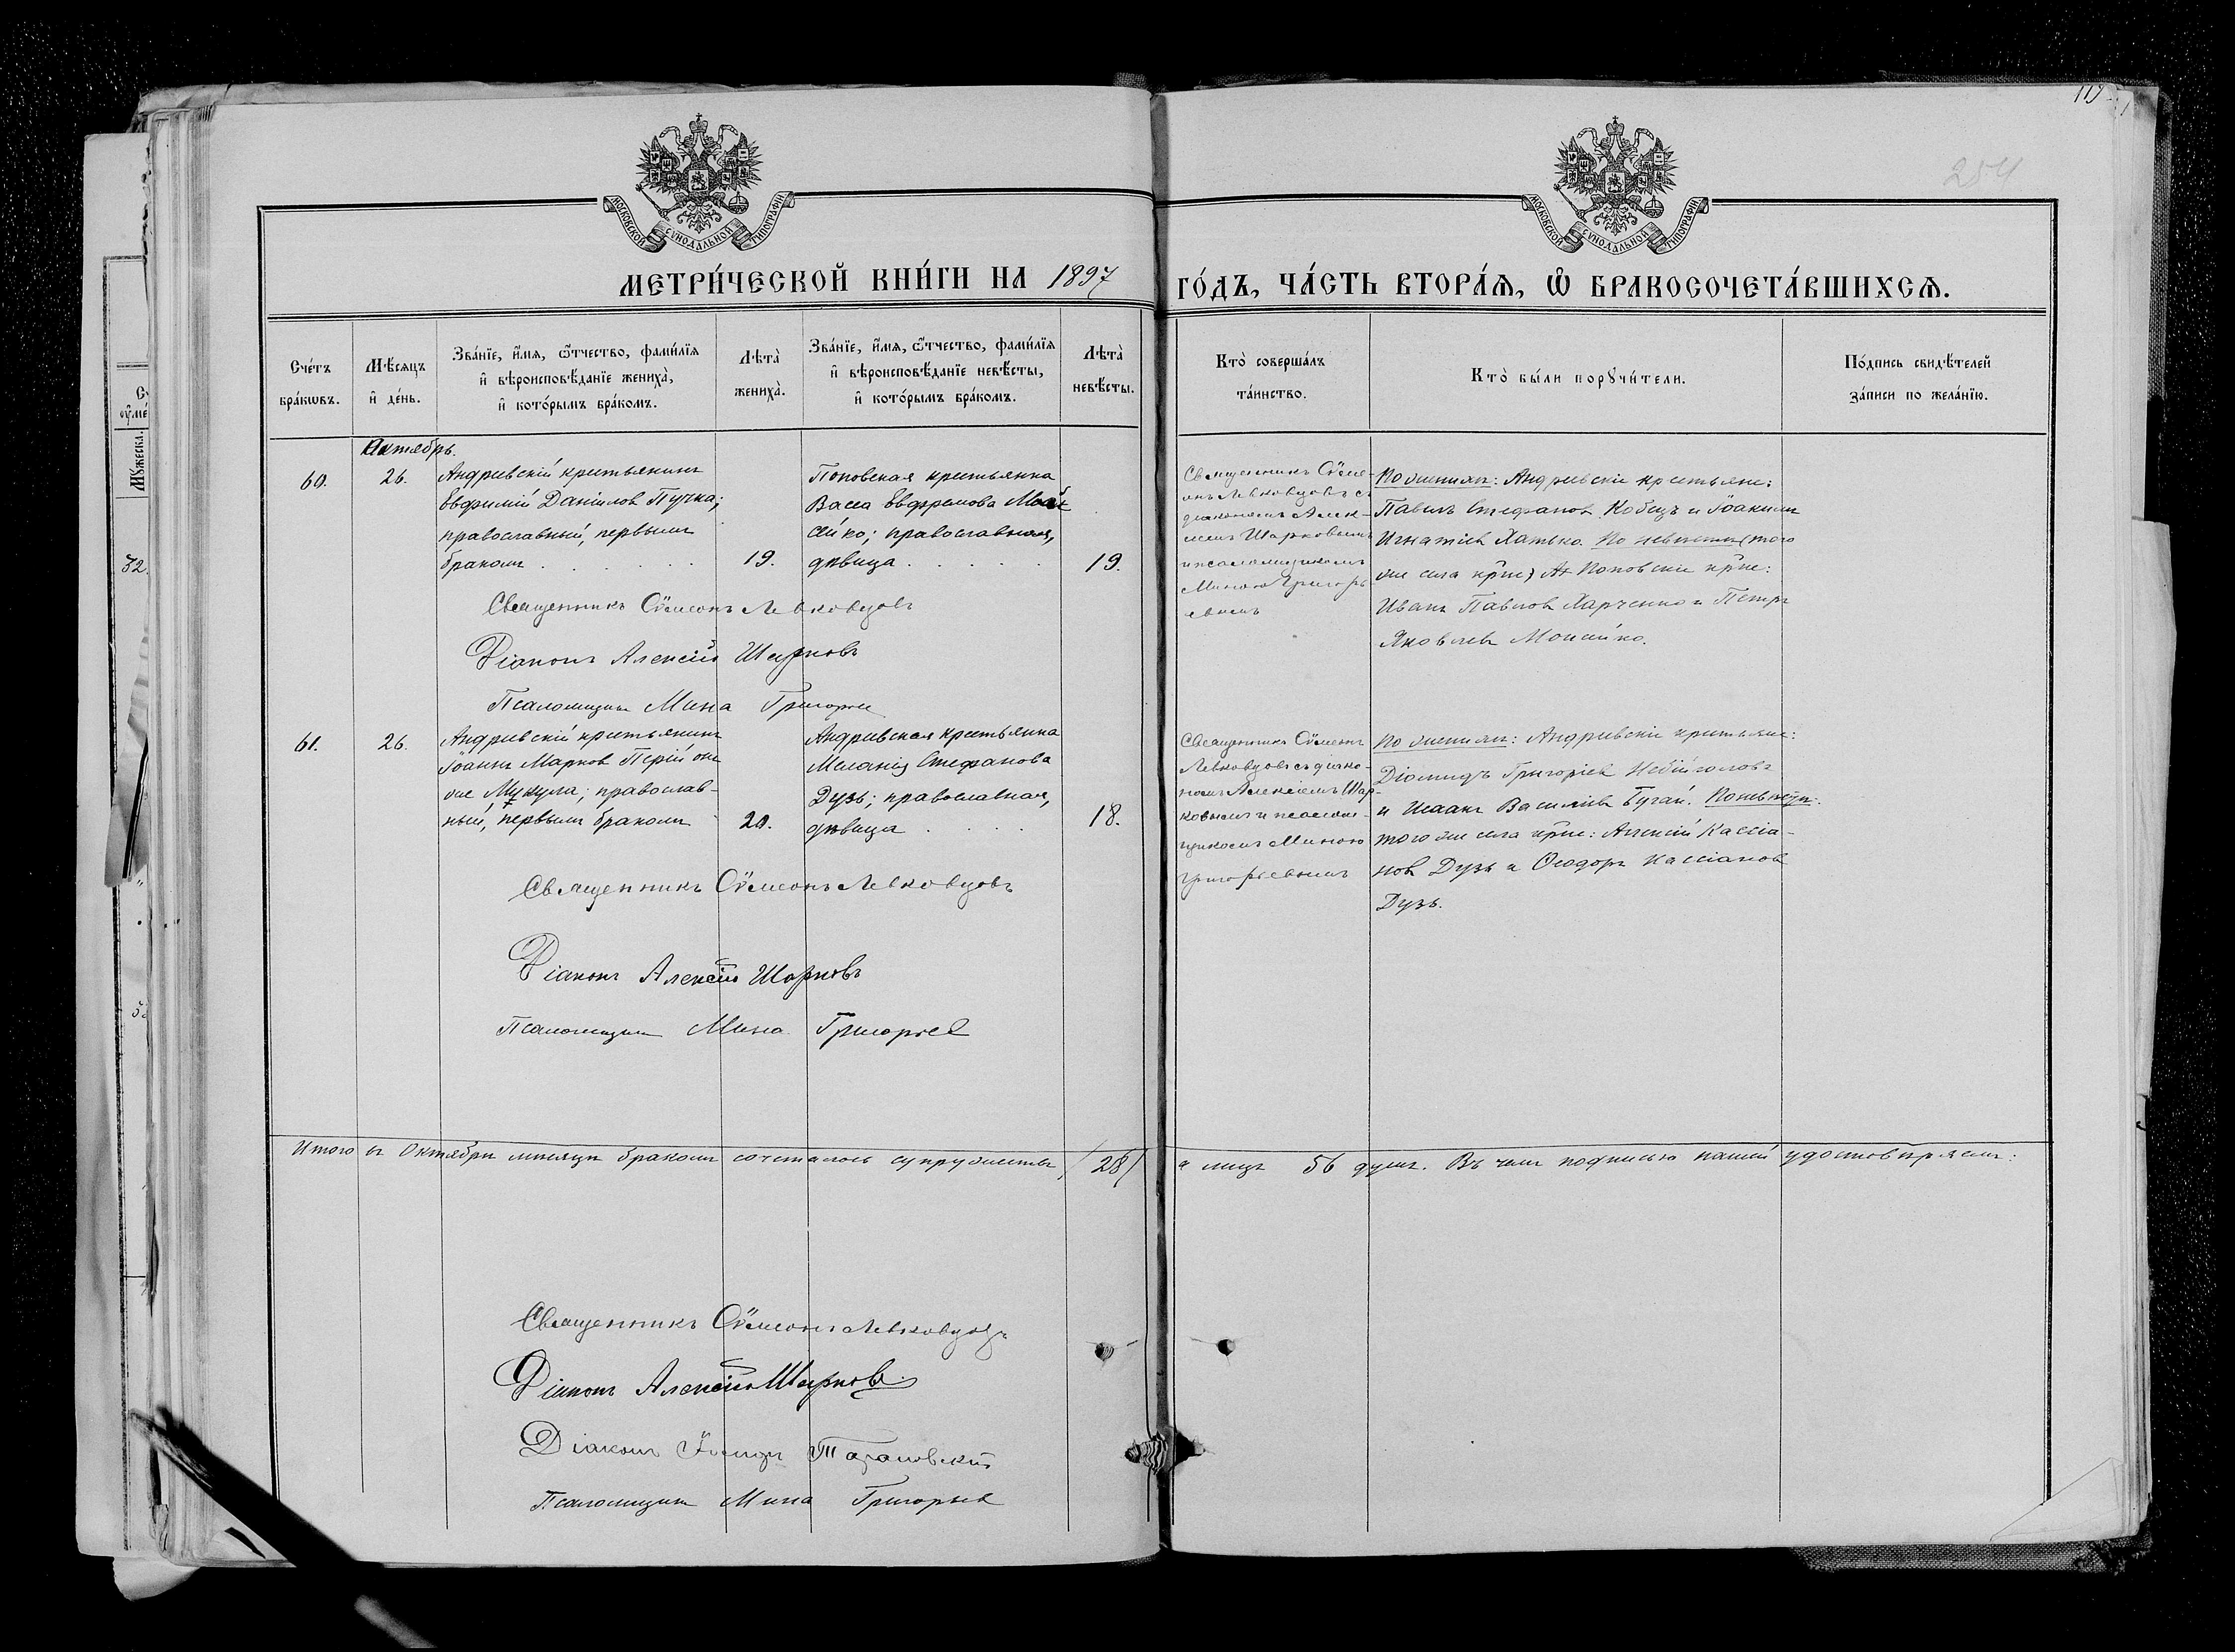 119
254
МОСКОВСКОЙ СѴНОДАЛЬНОЙ ТИПОГРАФІИ
МОСКОВСКОЙ СѴНОДАЛЬНОЙ ТИПОГРАФІИ
МЕТРИ́ЧЕСКОЙ КНИ́ГИ НА 1897 ГО́ДЪ, ЧА́СТЬ ВТОРА́Ѧ, Ѽ БРАКОСОЧЕТА́ВШИХСѦ.
Сче́тъ
бра́кѡвъ.
Мѣ́сяцъ
и҆ де́нь.
Зва́нїе, и҆́мя, ѻ҆́тчество, фами́лїя
и҆ вѣроисповѣ́данїе жениха̀,
и҆ кото́рымъ бра́комъ.
Лѣта̀
жениха̀.
Зва́нїе, и҆́мя, ѻ҆́тчество, фами́лїя
и҆ вѣроисповѣ́данїе невѣ́сты,
и҆ кото́рымъ бра́комъ.
Лѣта̀
невѣ́сты.
Кто̀ соверша́лъ
та́инство.
Кто̀ бы́ли порꙋчи́тели.
По́дпись свидѣ́телей
за́писи по жела́нїю.
Мꙋжеска.
32.
Октябрь.
60.
26.
Андреевскій крестьянинъ
Евфимій Даніиловъ Пучка;
православный, первымъ
бракомъ
19.
Поповская крестьянка
Васса Евфремова
сійко; православная,
дѣвица
19.
Священникъ Сѵме-
онъ Левковцовъ съ
діакономъ Алек-
сіемъ Шарковымъ
и псаломщикомъ
Миною Григорь-
евымъ
По женихѣ: Андреевскіе крестьяне:
Павелъ Стефановъ Кобецъ и Іоакимъ
Игнатіевъ Хатько. По невѣстѣ (того
же села кр͠не) Поповскіе кр͠не:
Иванъ Павловъ Харченко и Петръ
Яковлевъ Моисійко.
Священникъ Сѵмеонъ Левковцовъ
Діаконъ Алексій Шарковъ
Псаломщикъ Мина Григорьевъ
61.
26.
Андреевскій крестьянинъ
Іоаннъ Марковъ Перій онъ
же Микула; православ-
ный, первымъ бракомъ
20.
Андреевская крестьянка
Меланія Стефанова
Дузь; православная,
дѣвица
18.
Священникъ Сѵмеонъ
Левковцовъ съ діако-
номъ Алексіемъ Шар-
ковымъ и псалом-
щикомъ Миною
Григорьевымъ
По женихѣ: Андреевскіе крестьяне:
Діомидъ Григоріевъ Небійголовъ
и Исаакъ Василіевъ Бугай. По невѣстѣ:
того же села кр͠не: Алексій Кассіа-
новъ Дузь и Ѳеодоръ Кассіановъ
Дузь.
Священникъ Сѵмеонъ Левковцовъ
Діаконъ Алексій Шарковъ
Псаломщикъ Мина Григорьевъ
Итого въ Октябрѣ мѣсяцѣ бракомъ сочеталось супружествъ (28) а лицъ 56 душъ. Въ чемъ подписью нашей удостовѣряемъ:
Священникъ Сѵмеонъ Левковцовъ
Діаконъ Алексій Шарковъ
Діаконъ Іосифъ Тарановскій
Псаломщикъ Мина Григорьевъ